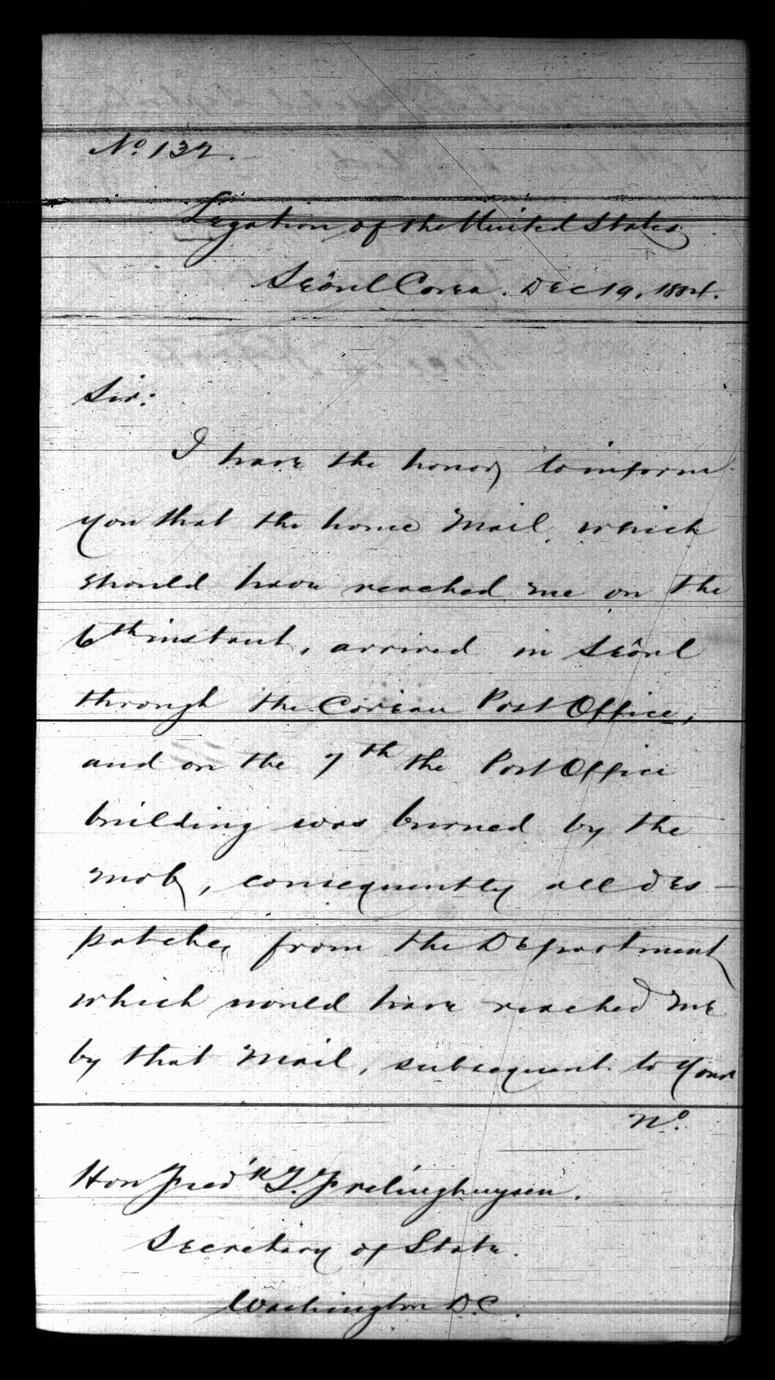 No 137.
Legation of the United States.
Seoul Corea. Dec 19, 1884.
Sir:
I have the honor to inform
you that the home Mail, which
should have reached me on the
6th instant, arrived in Seoul
through the Corean Post Office,
and on the 7th the Post Office
building was burned by the
mob, consequently all des-
patches from the Department
which would have reached me
by that Mail, subsequent to your
No
Hon Fredk T. Frelinghuysen.
Secretary of State.
Washington D.C.